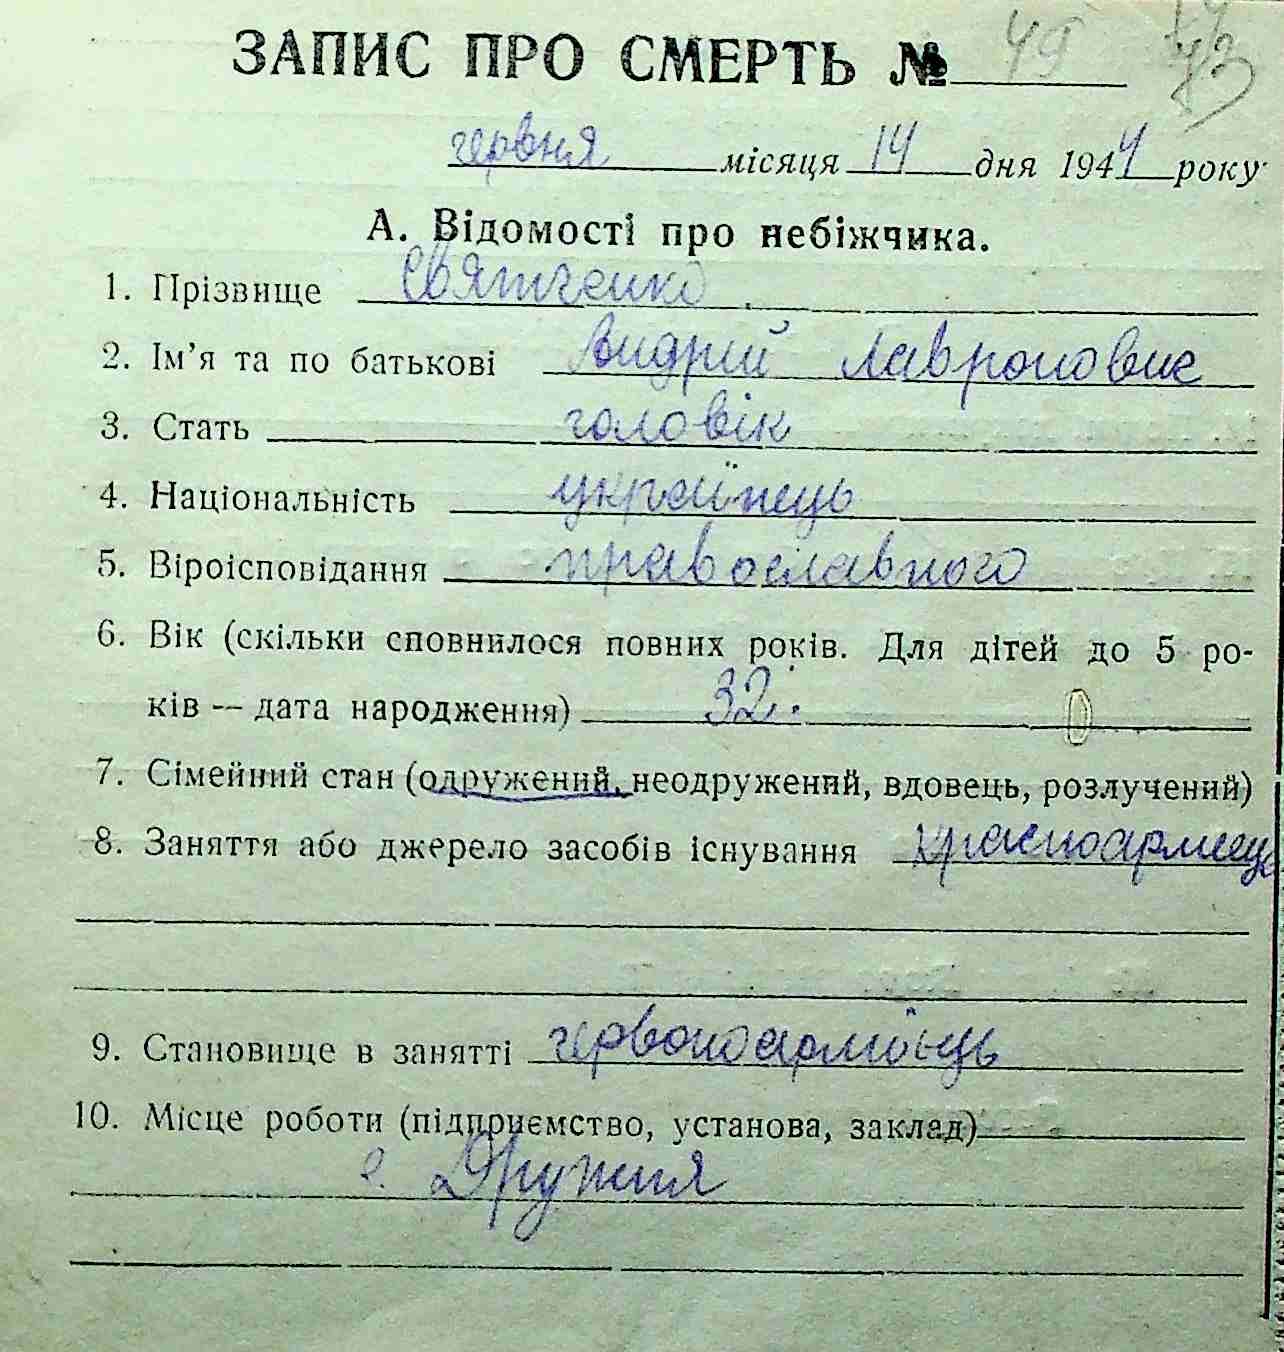 ЗАПИС ПРО СМЕРТЬ № 49
червня місяця 14 дня 1944 року
А. Відомості про небіжчика.
1. Прізвище Святченко
2. Ім’я та по батькові Андрій Лавронович
3. Стать чоловік
4. Національність українець
5. Віроісповідання православного
6. Вік (скільки сповнилося повних років. Для дітей до 5 ро-
ків — дата народження) 32
7. Сімейний стан (одружений, неодружений, вдовець, розлучений)
8. Заняття або джерело засобів існування красноармеець
9. Становище в занятті червоноармоїець
10. Місце роботи (підприємство, установа, заклад)
с. Дружня